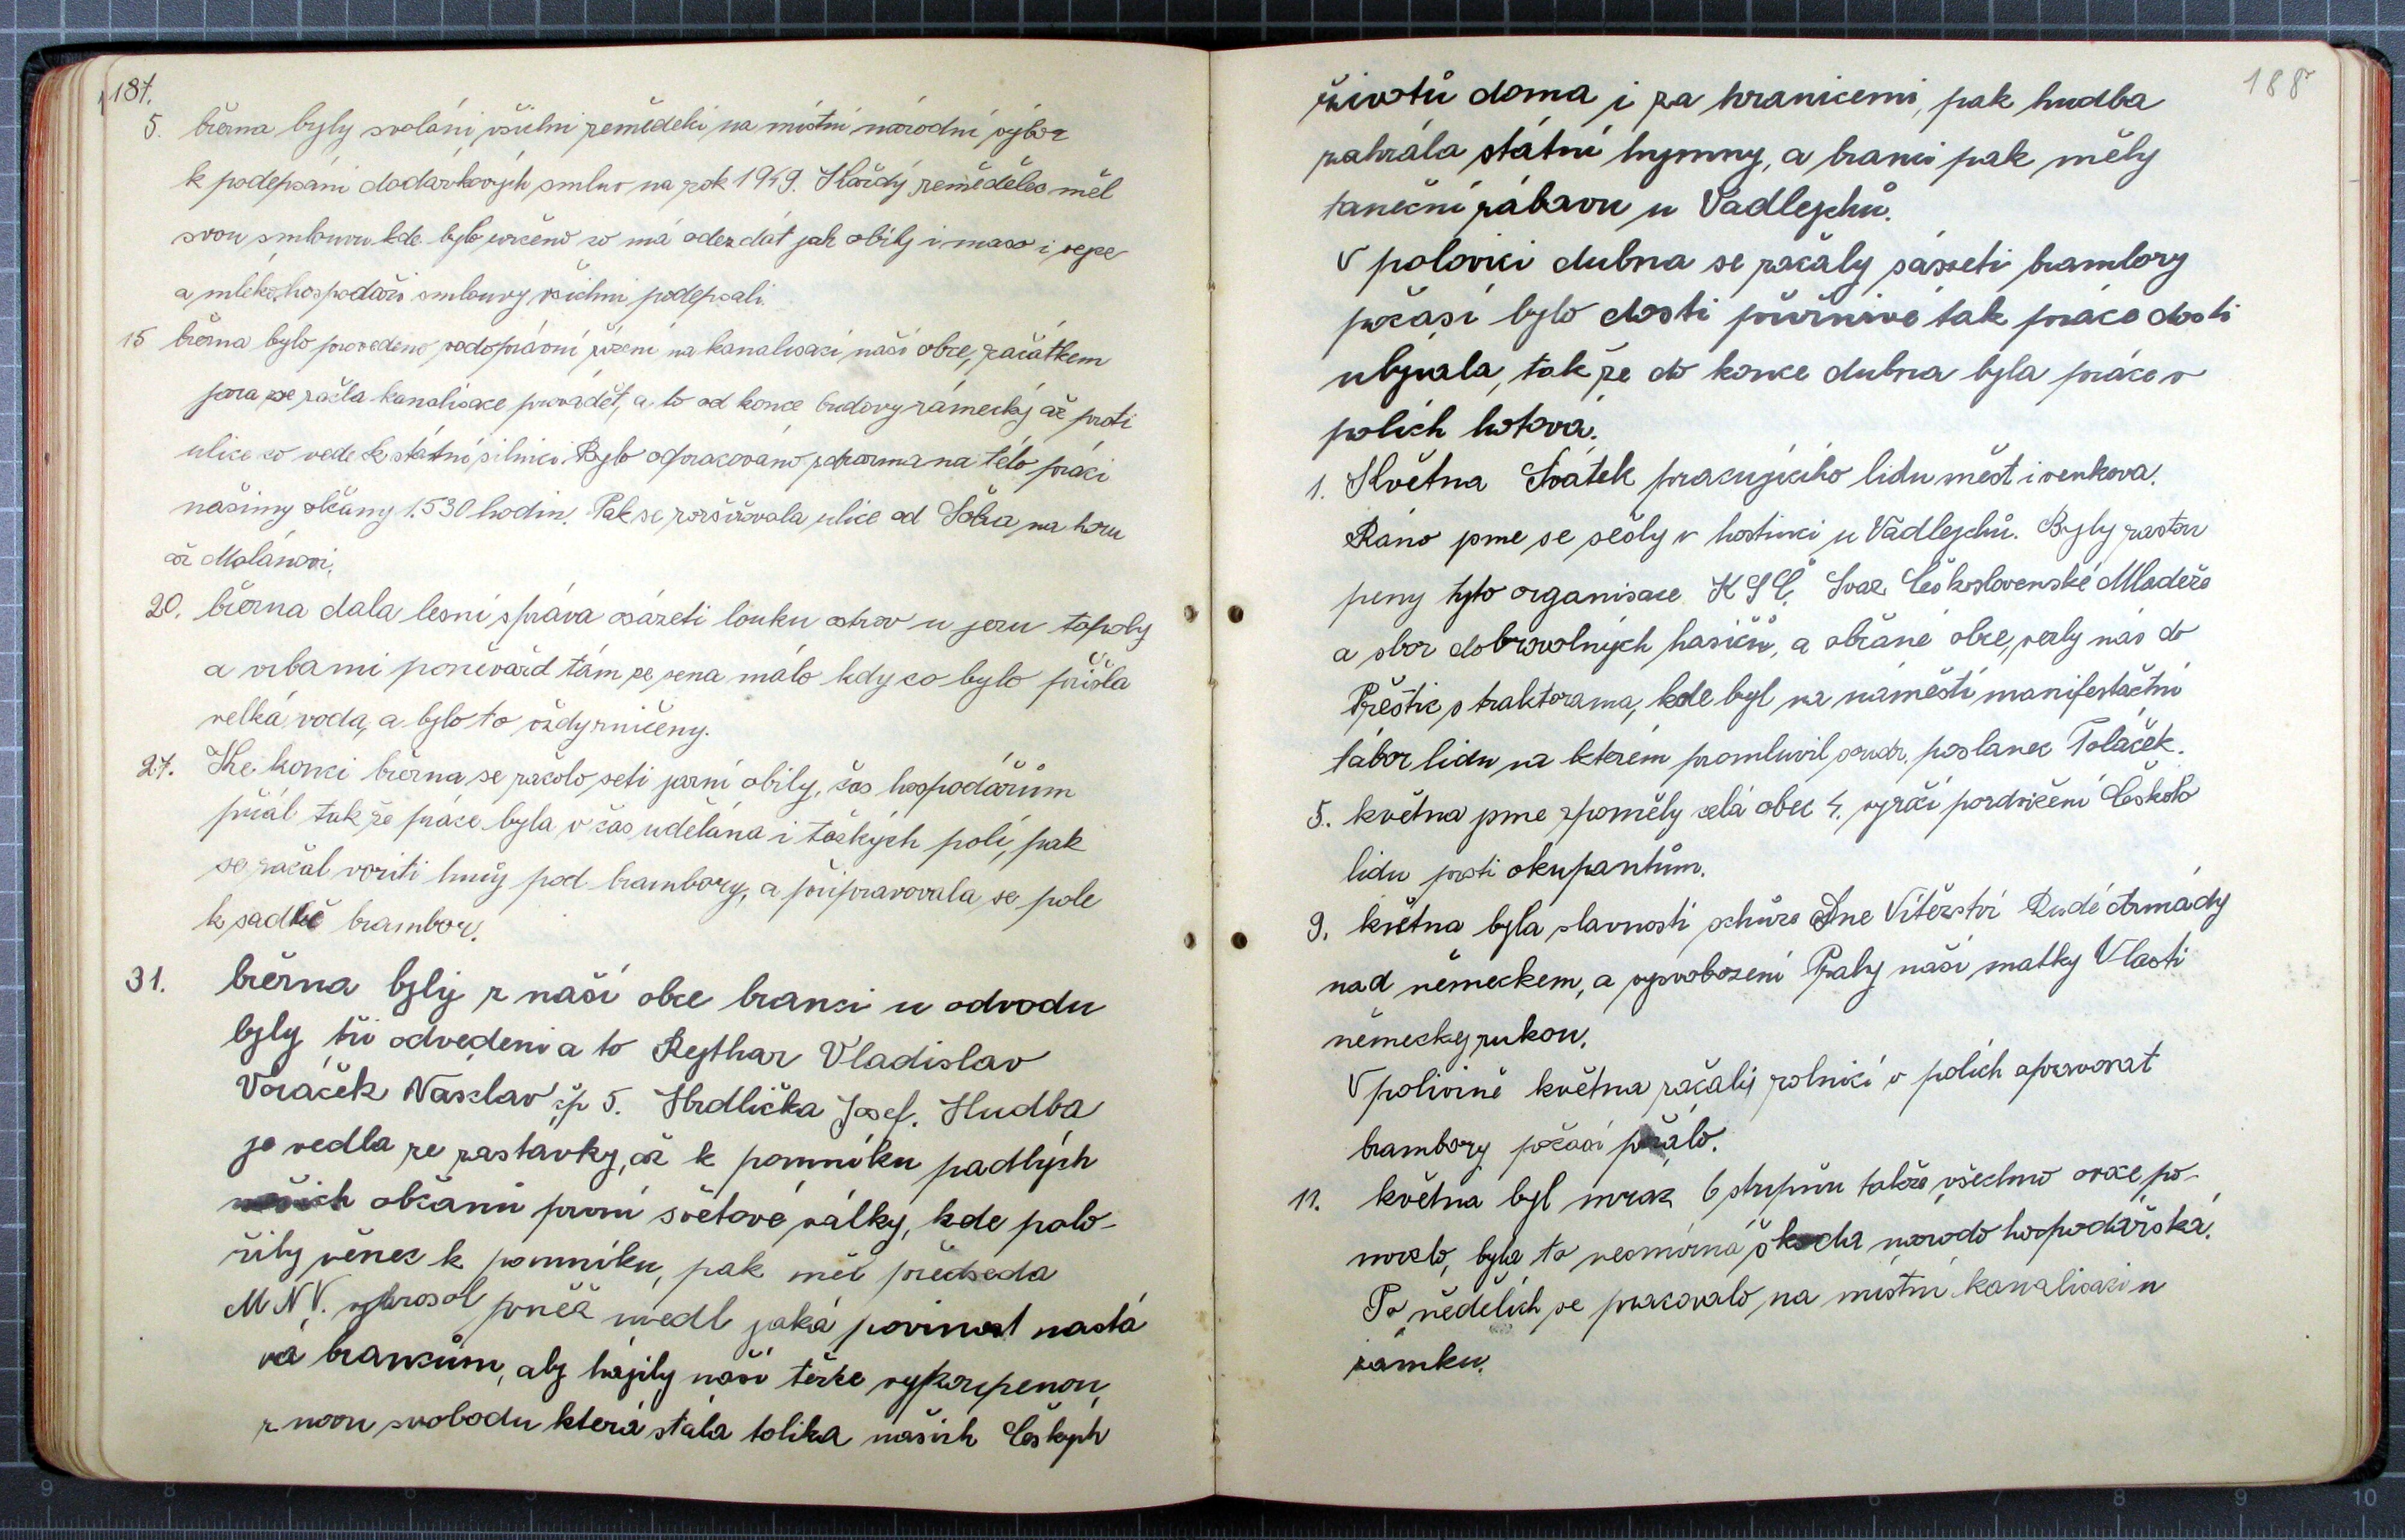 187.
5. března byly svoláni všichni zemědělci na místní národní výbor
k podepsání dodávkových smluv na rok 1949. Každý zemědělec měl
svou smlouvu kde bylo určeno co má odezdát jak obilý i maso i vejce
a mléko, hospodáři smlouvy všichni podepsali.
15 března bylo provedeno vodoprávní řízení na kanalisaci naší obce, začátkem
jara se začla kanalisace provádět, a to od konce budovy zámecký až proti
ulice co vede k státní silnici. Bylo odpracováno zdarma na této práci
našimy občany 1.530 hodin. Pak se rozšiřovala ulice od Šobra na horu
až Molánovi.
20. března dala lesní správa osázeti louku ostrov u jezu topoly
a vrbami poněvažd tám se sena málo kdy co bylo přišla
velká voda, a bylo to vždy zničeny.
27. Ke konci března se začalo seti jarní obilý, čas hospodářům
přál tak že práce byla v čas udělána i těžkých polí, pak
se začal voziti hnůj pod brambory, a připravovala se pole
k sadbě brambor.
31. března byly z naší obce branci u odvodu
byly tři odvedeni a to Rejthar Vladislav
Voráček Václav čp 5. Hrdlička Josef. Hudba
je vedla ze zastávky, až k pomníku padlých
našich občanů první světové války, kde polo-
žily věnec k pomníku, pak měl předseda
M N V. proslov uvedl jaká povinost nastá
vá brancům, aby hájily naší těžce vykoupenou
z novu svobodu která stála tolika našich Českých
188
životů doma i za hranicemi, pak hudba
zahrála státní hymny, a branci pak měly
taneční zábavu u Vadlejchů.
V polovici dubna se začaly sázseti brambory
počasí bylo dosti příznivé tak práce dosti
ubývala, tak že do konce dubna byla práce v
polích hotová.
1. Května Svátek pracujícího lidu měst i venkova.
Ráno jsme se sešly v hostinci u Vadlejchů. Byly zastou
peny tyto organisace K S Č. Svaz Československé Mládeže
a sbor dobrovolných hasičů, a občané obce, vezly nás do
Přeštic s traktorama, kde byl na náměstí manifestační
tábor lidu na kterém promluvil soudr. poslanec Poláček.
5. května jsme zpoměly celá obec 4. výračí pozdvižení Česko
lidu proti okupantům.
9. května byla slavností schůze Dne Vítězství Rudé Armády
nad německem, a vysvobození Prahy naší matky Vlasti
německy rukou.
V polivině května začaly rolnici v polích opravovat
brambory počasí přálo.
11. května byl mraz 6 stupňu takže všechno ovoce po-
mrzlo, byla to nesmírná škoda národo hospodářská.
Po nědělích se pracovalo na místní kanalisaci u
zámku.